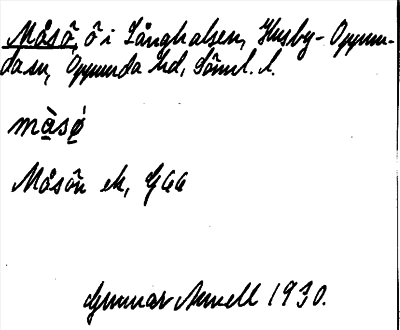 Måsö, ö i Långhalsen, Husby-Oppun-
dasn, Oppunda hd, Söml. l.
màsǿ
Måsön ek, G66
Gunnar 1930.